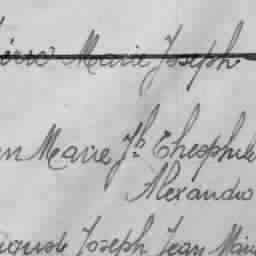 Marie Joseph
Marie Jh Theophile
Alexandre
Joseph Jean Marie